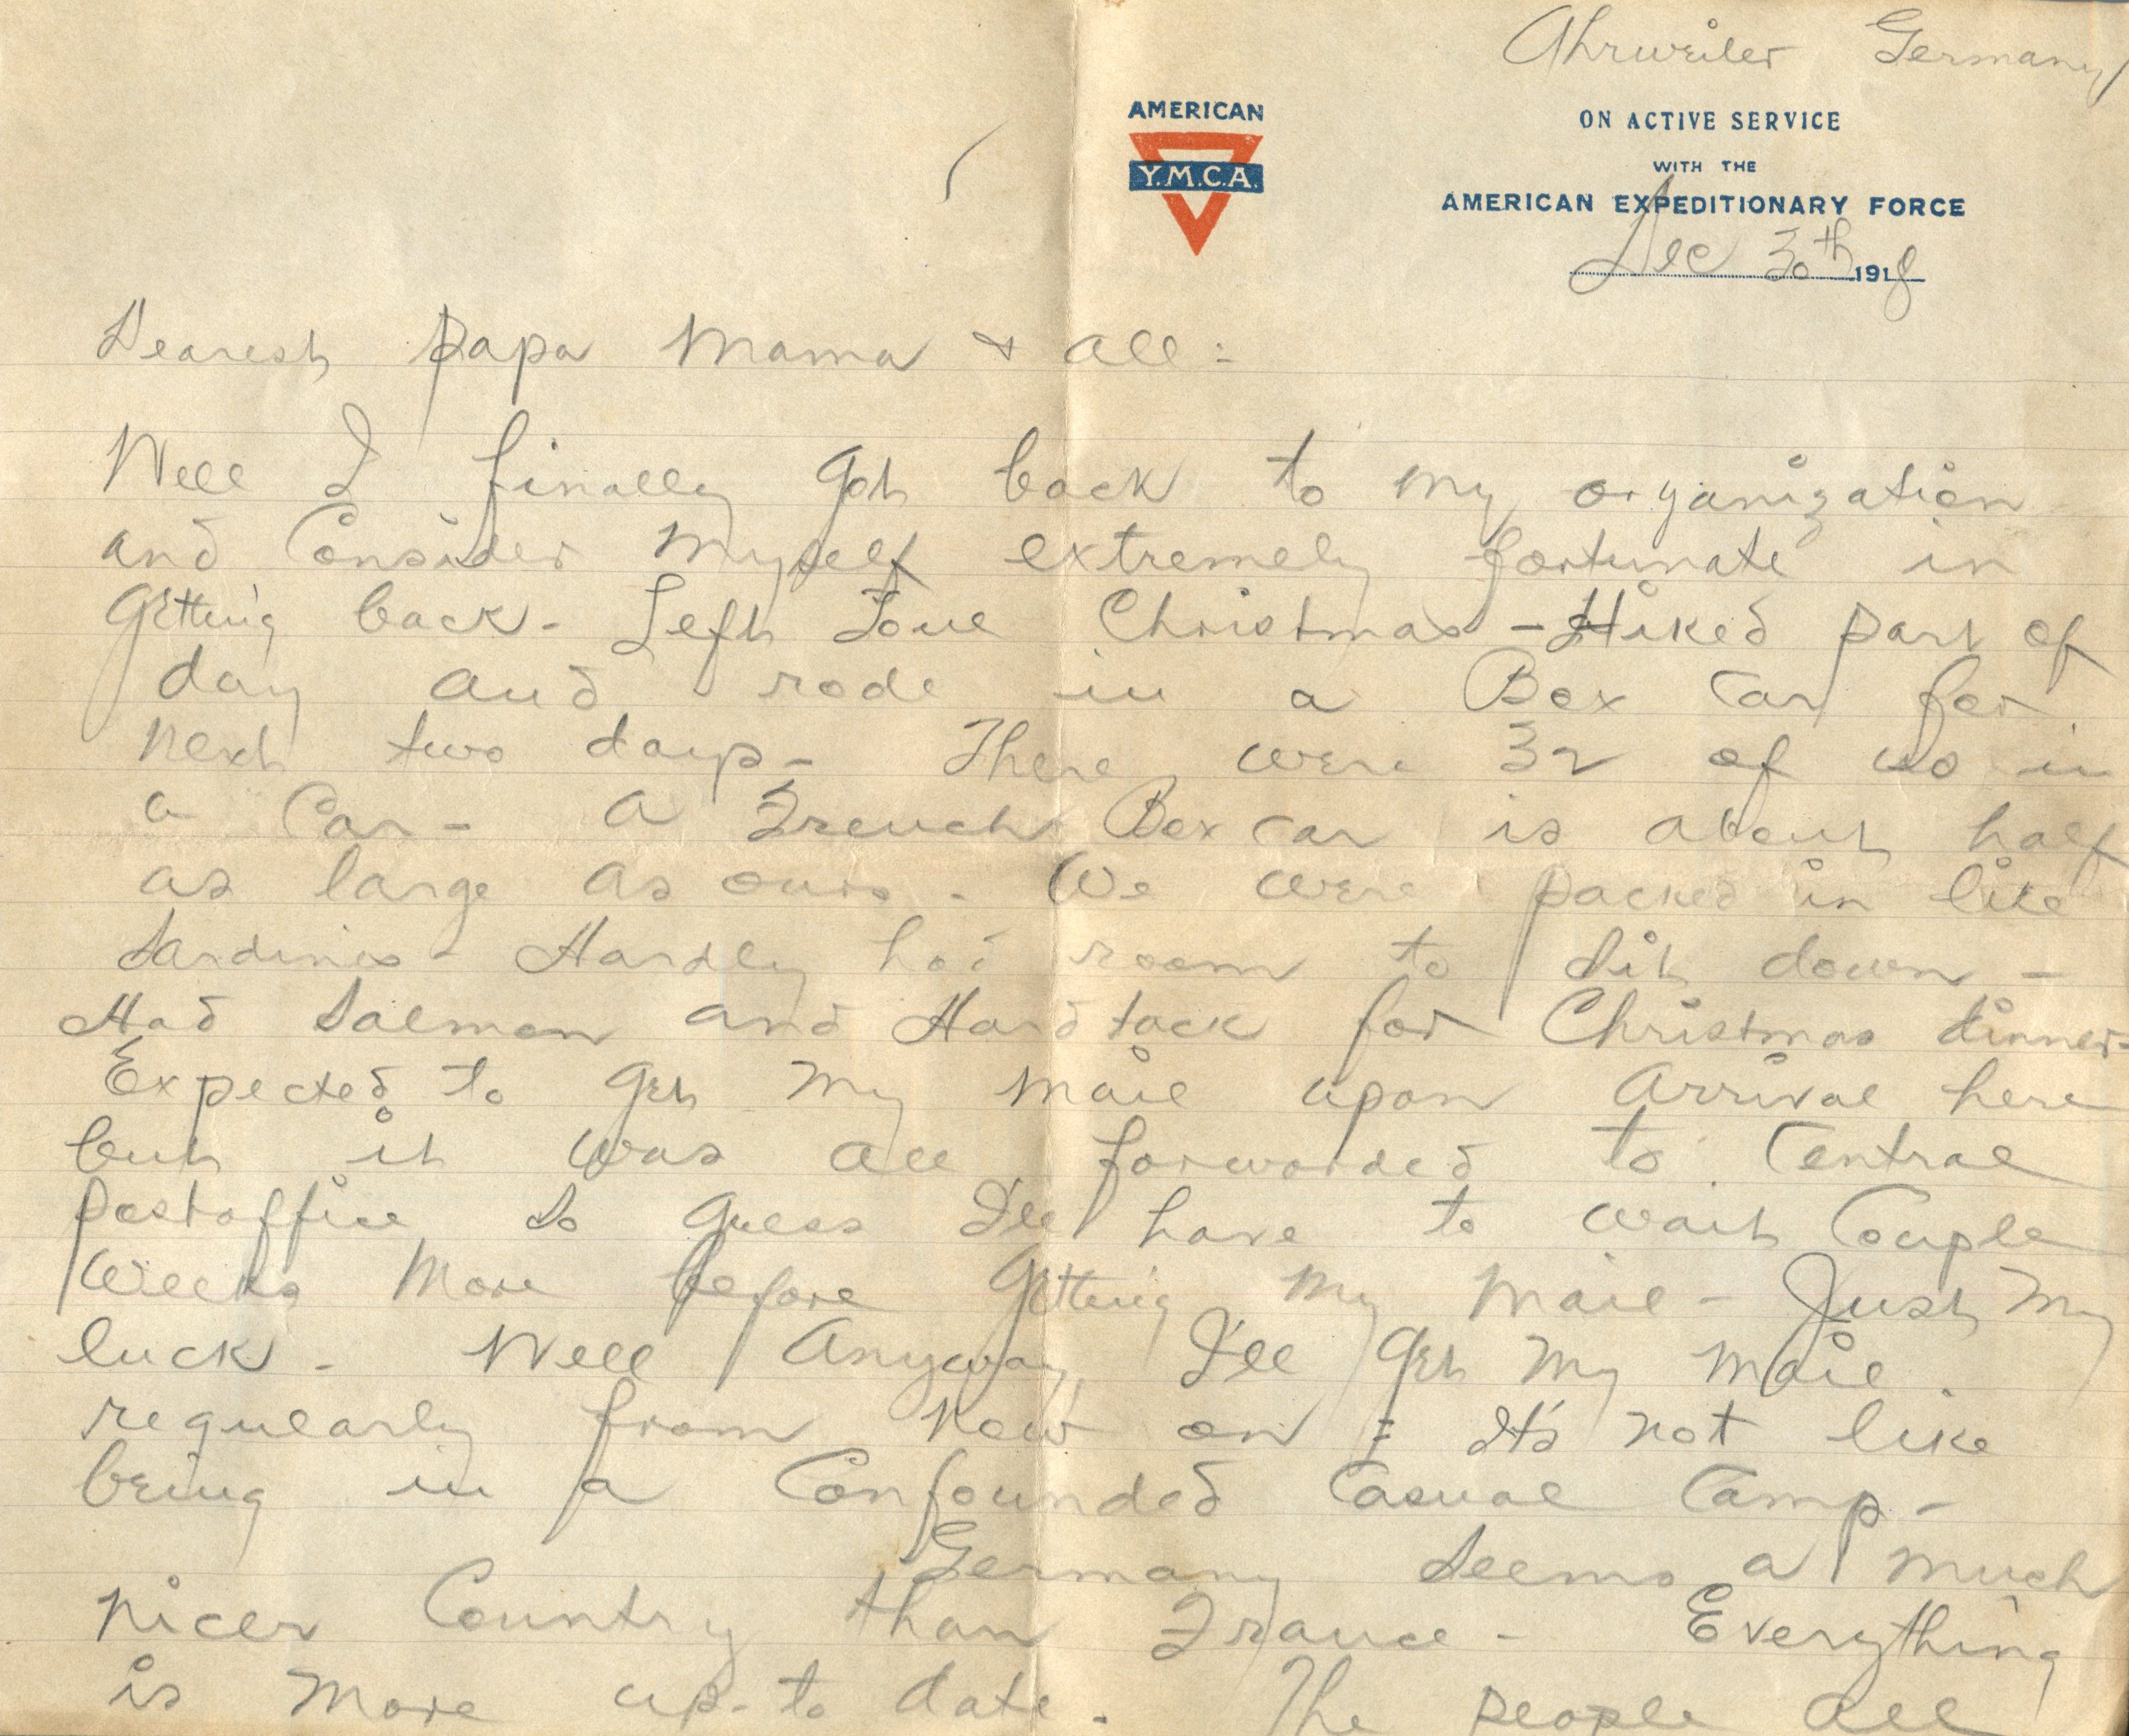 Ahrweiler Germany
AMERICAN
Y.M.C.A.
ON ACTIVE SERVICE
WITH THE
AMERICAN EXPEDITIONARY FORCE
Dec 30th 1918
Dearest Papa Mama & all:
Well I finally got back to my organization
and Consider myself extremely fortunate in
getting back - Left Toul Christmas - Hiked part of
day and rode in a Box Car for
next two days - There were 32 of us in
a Car - A French Box car is about half
as large as ours - We were packed in like
Sardines - Hardly had room to sit down -
Had Salmon and Hard tack for Christmas dinner -
Expected to get my mail upon arrival here
but it was all forwarded to Central
postoffice so guess I'll have to wait Couple
weeks more before getting my mail - Just my
luck - Well Anyway I'll get my mail
regularly from now on : It's not like
being in a Confounded Casual Camp -
Germany seems a much
nicer Country than France - Everything
is more up-to date. The people all